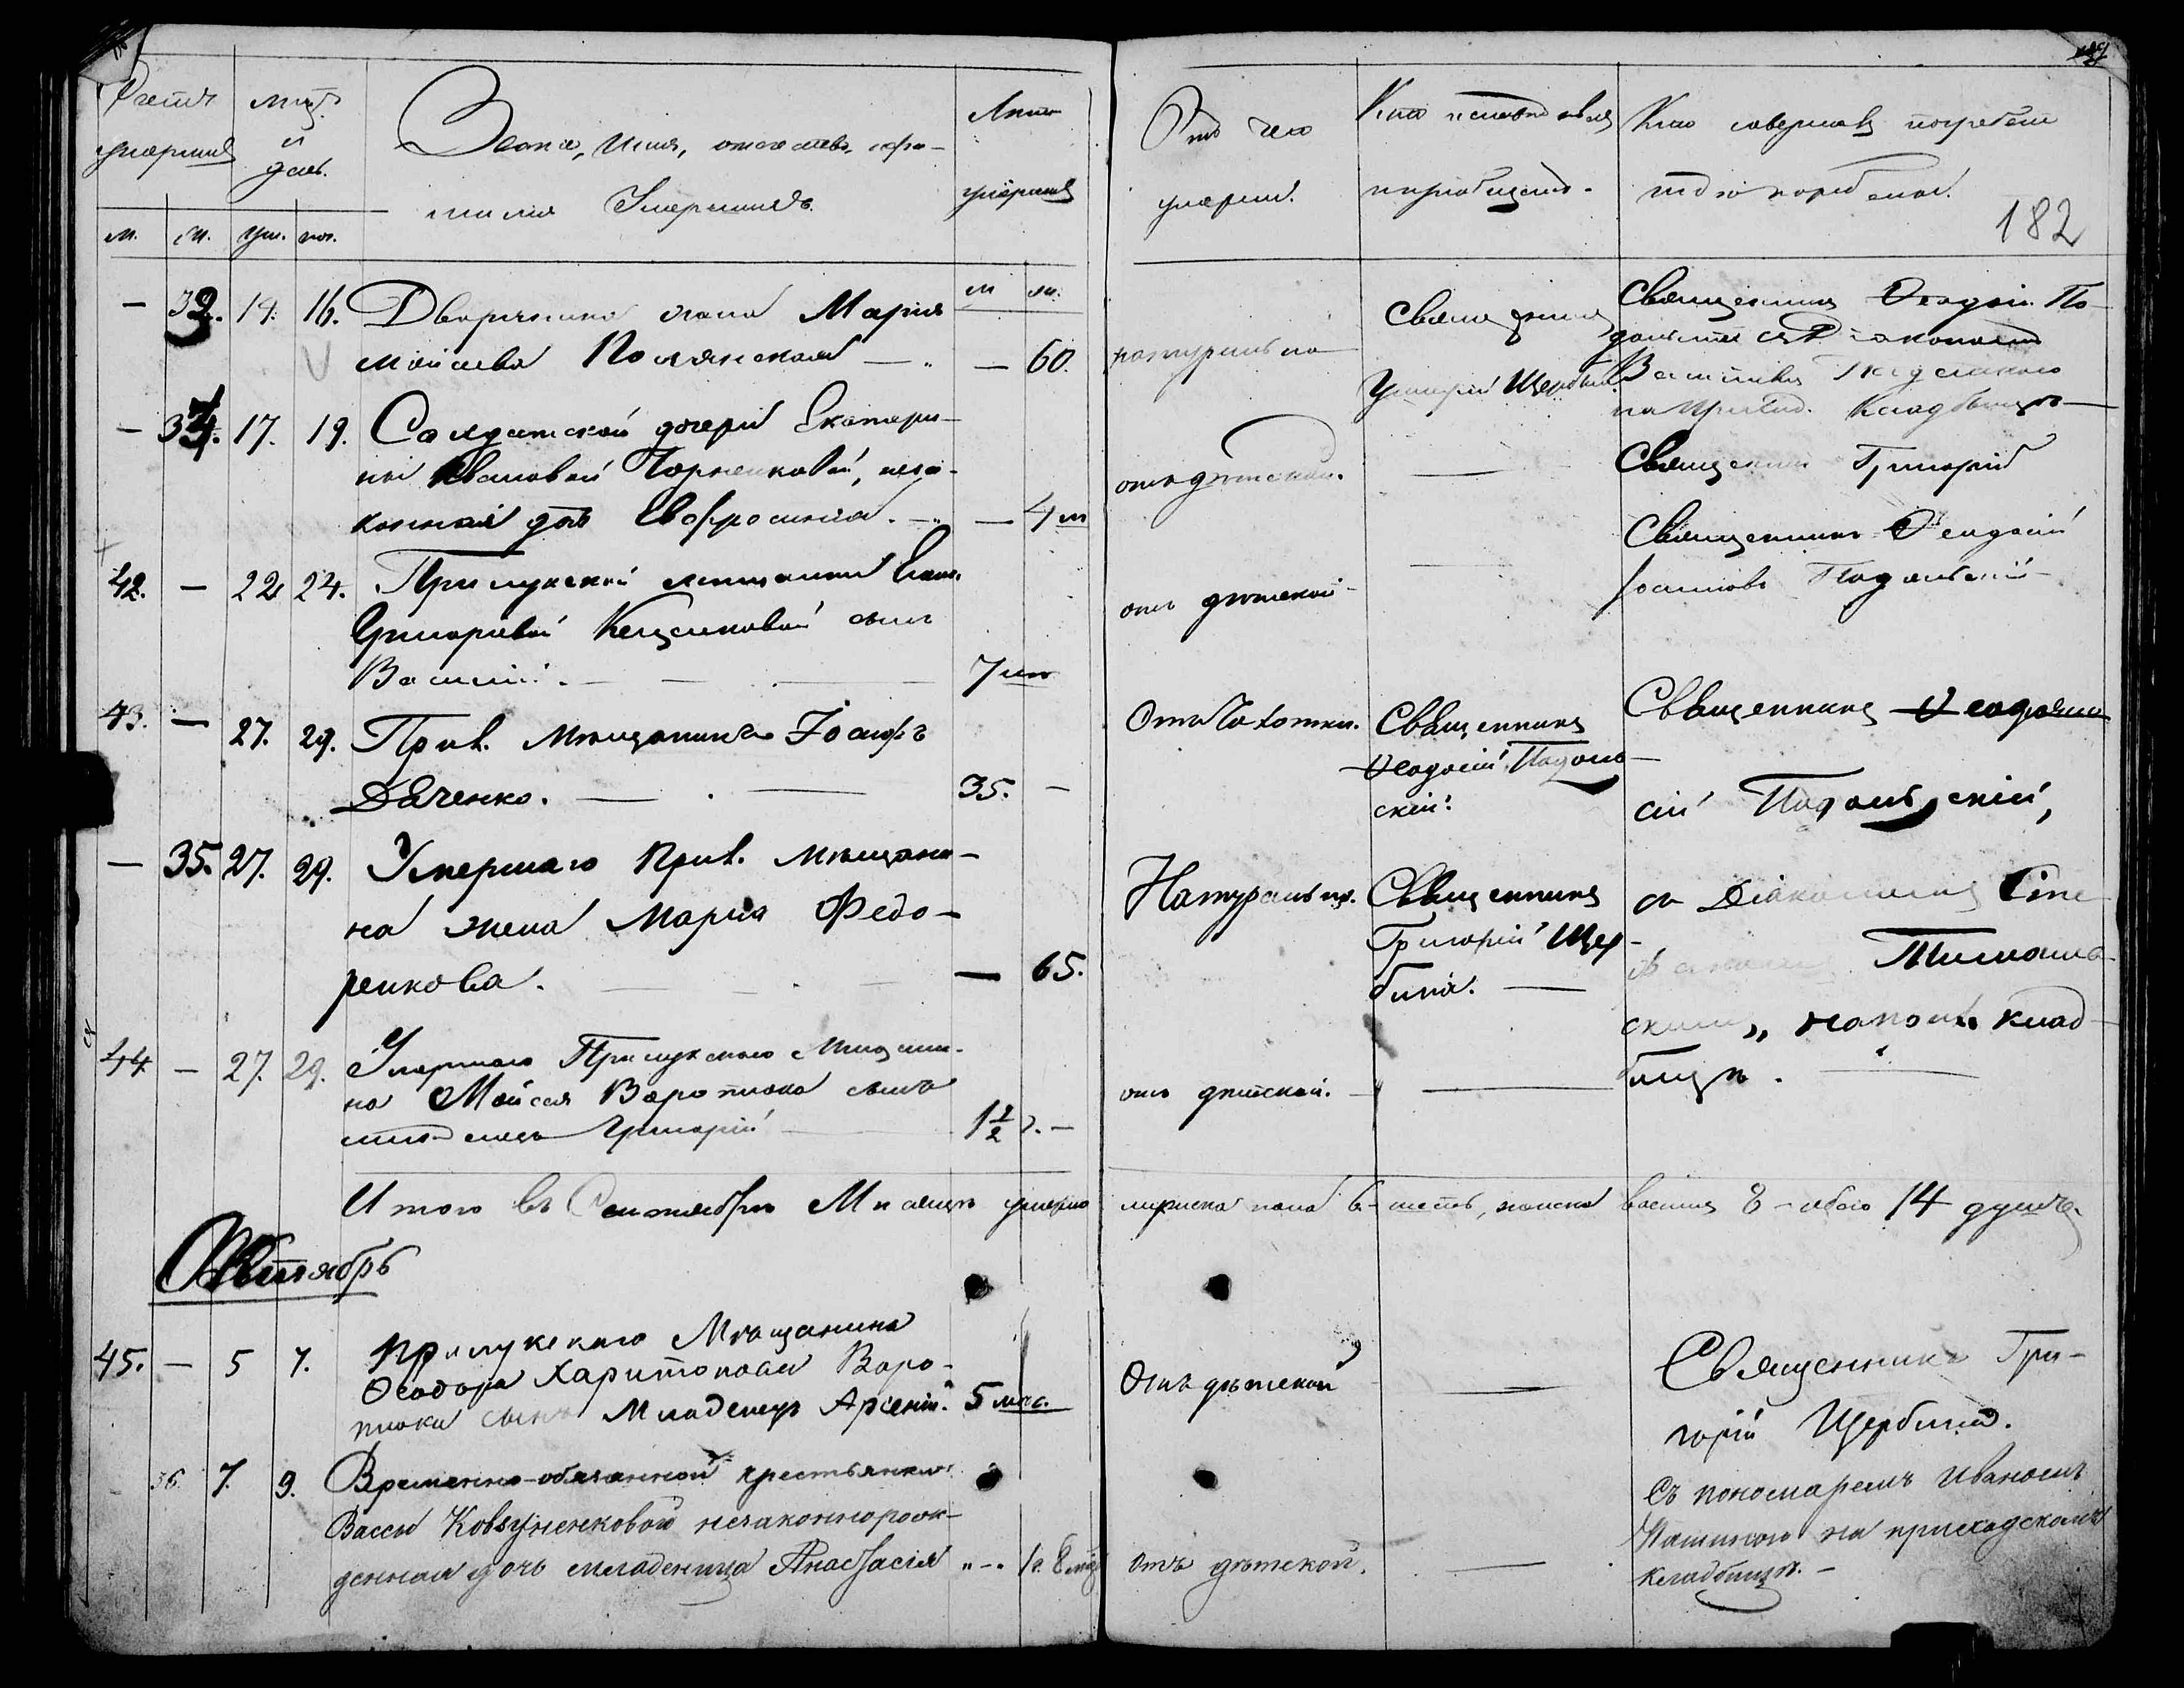 Счетъ умершихъ
Мѣс. и день.
Званіе, Имя, отчество, фа-
милія Умершихъ.
Лѣта умершихъ
Отъ чего умеръ.
Кто исповѣдовалъ
и пріобщалъ.
Кто совершалъ погребеніе
и гдѣ погребены.
182
м. ж. ум. пог.
м ж.
— 33. 14. 16. Дворянина жена Марія
Мойсеева Полянская — — 60.
натурально
Священникъ
Григорій Щербина
Священникъ Ѳеодосій По-
дольскій съ Діакономъ
на приход. Кладбищѣ —
— 34. 17. 19. Солдатской дочери Екатери-
ны Ивановой Чорненковой, неза-
конная дочь Евфросинія. — — 4 м
отъ дѣтской. —
Священникъ Григорій
42. — 22 24. Прилукской мѣщанки
Григорьевой сынъ
Василій. — 7 м
отъ дѣтской —
Священникъ Ѳеодосій
Іоанновъ Подольскій —
43. — 27. 29. Прил. Мѣщанинъ Іосифъ
Дяченко. — 35. —
Отъ Чахотки.
Священникъ
Ѳеодосій Подоль-
скій.
Священникъ Ѳеодо-
сій Подольскій,
— 35. 27. 29. Умершаго Прил. Мѣщани-
на жена Марія Федо-
ренкова. — 65.
Натурально.
Священникъ
Григорій Щер-
бина. —
съ Діакономъ Сте-
скимъ, на прих. клад-
бищѣ. —
44 — 27. 29. Умершаго Прилукскаго Мѣщани-
на Мойсея Воропика сынъ
младенецъ Григорій — 1 1/2 г. —
отъ дѣтской. —
Итого въ Сентябрѣ Мѣсяцѣ умерло мужеска пола 6 — шесть, женска восемь 8 — обоего 14 душъ.
Октябрь
45. — 5 7. Прилукскаго Мѣщанина
Ѳеодора Харитонова Воро-
пика сынъ Младенецъ Арсеній. 5 мѣс.
Отъ дѣтской —
Священникъ Гри-
горій Щербина.
36. 7. 9. Временно-обязанной крестьянки
Вассы Ковзуненковой незаконнорож-
денная дочь младеница Анастасія „ — „ 1 г. 8 мѣс
отъ дѣтской. —
Съ пономаремъ Иваномъ
на приходскомъ
кладбищѣ. —